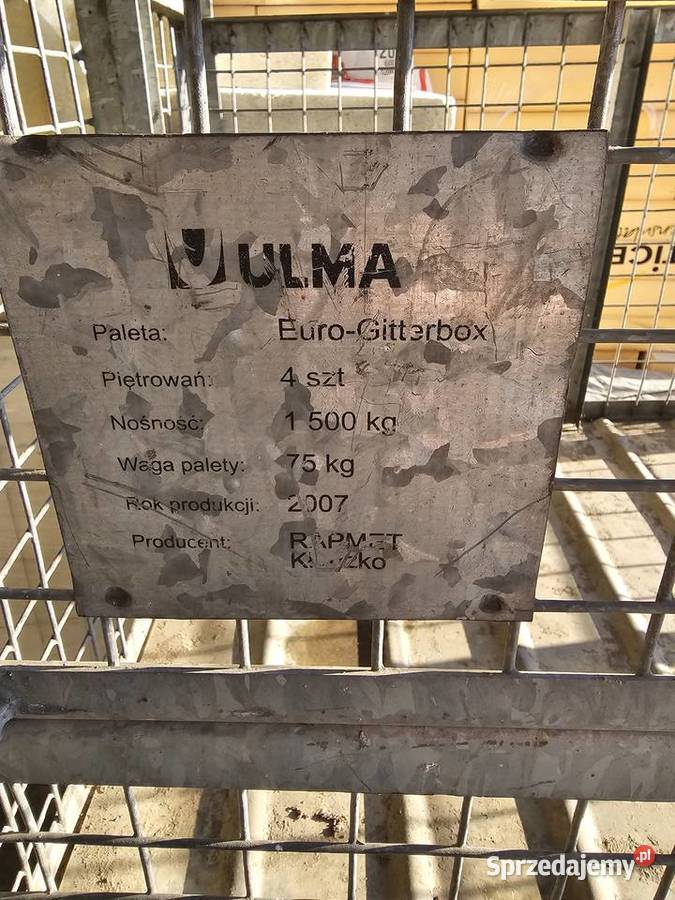 ULMA
Paleta: Euro-Gitterbox
Piętrowań: 4 szt
Nośność: 1 500 kg
Waga palety: 75 kg
Rok produkcji: 2007
Producent: RAPMET
Sprzedajemy.pl